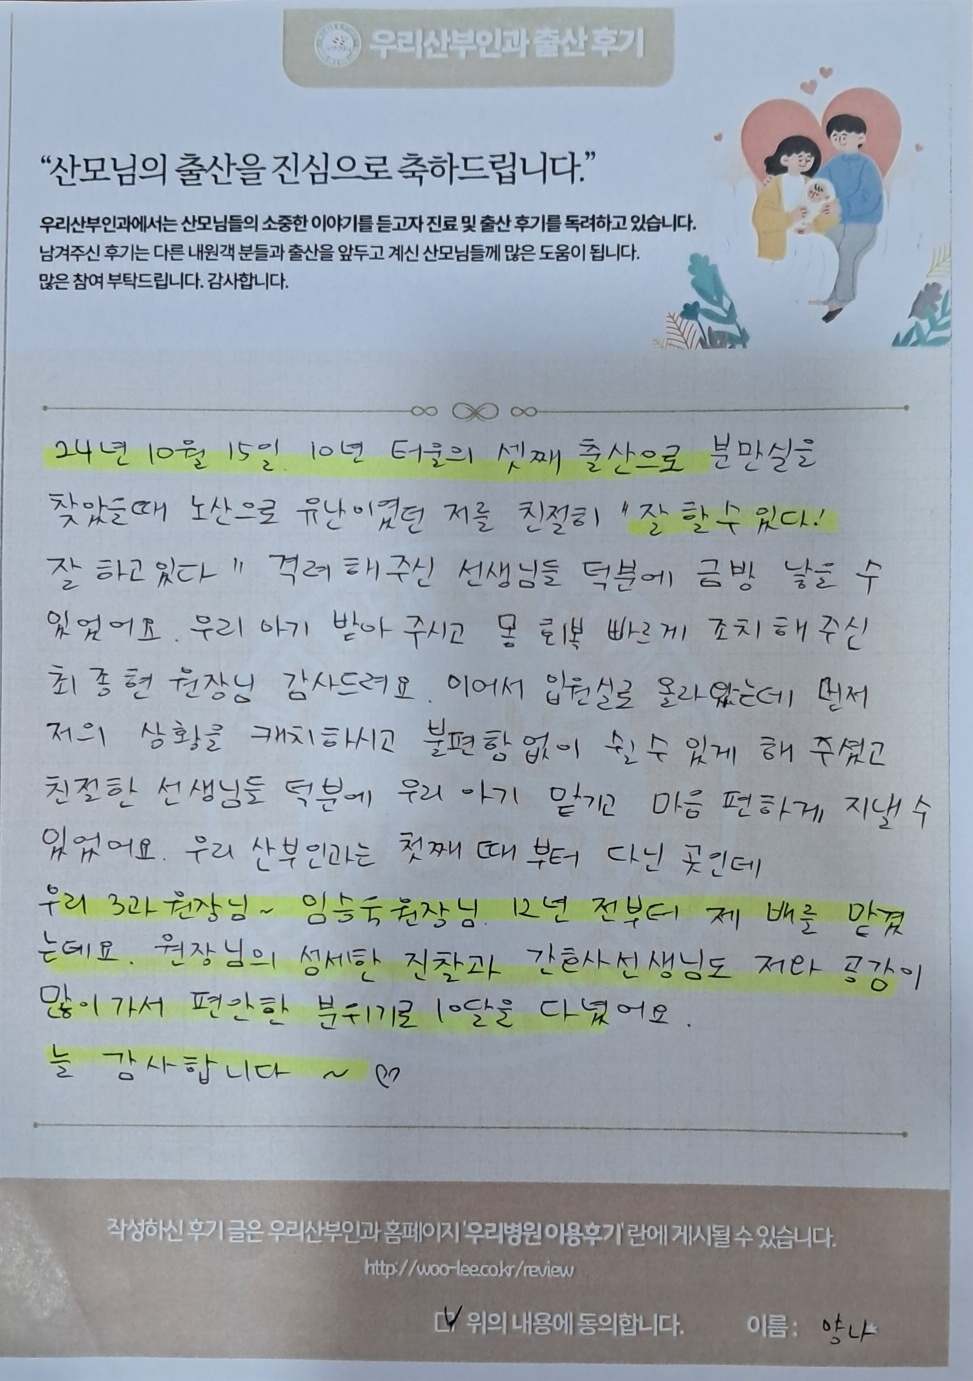 우리산부인과 출산 후기
“산모님의 출산을 진심으로 축하드립니다.”
우리산부인과에서는 산모님들의 소중한 이야기를 듣고자 진료 및 출산 후기를 독려하고 있습니다.
남겨주신 후기는 다른 내원객 분들과 출산을 앞두고 계신 산모님들께 많은 도움이 됩니다.
많은 참여 부탁드립니다. 감사합니다.
24년 10월 15일. 10년 터울의 셋째 출산으로 분만실을
찾았을때 노산으로 유난이였던 저를 친절히 "잘 할 수 있다!
잘 하고 있다" 격려 해 주신 선생님들 덕분에 금방 낳을 수
있었어요. 우리 아기 받아 주시고 몸 회복 빠르게 조치 해 주신
최종현 원장님 감사드려요. 이어서 입원실로 올라왔는데 먼저
저의 상황을 캐치하시고 불편함없이 쉴 수 있게 해 주셨고
친절한 선생님들 덕분에 우리 아기 맡기고 마음 편하게 지낼 수
있었어요. 우리 산부인과는 첫째 때 부터 다닌 곳인데
우리 3과 원장님~ 임승숙원장님. 12년 전부터 제 배를 맡겼
는데요. 원장님의 섬세한 진찰과 간호사선생님도 저와 공감이
많이가서 편안한 분위기로 10달을 다녔어요.
늘 감사합니다 ~ ♡
작성하신 후기 글은 우리산부인과 홈페이지 '우리병원 이용후기' 란에 게시될 수 있습니다.
http://woo-lee.co.kr/review
위의 내용에 동의합니다. 이름 :